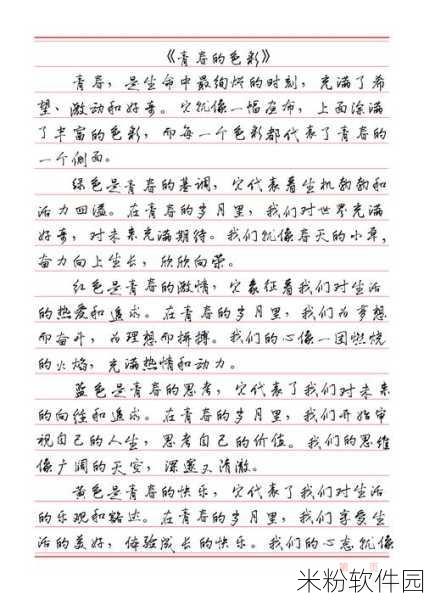 《青春的色彩》
青春，是生命中最绚烂的时刻，充满了希
望、激动和好奇。它就像一幅画布，上面涂满
了丰富的色彩，而每一个色彩都代表了青春的
一个侧面。
绿色是青春的基调，它代表着生机勃勃和
活力四溢。在青春的岁月里，我们对世界充满
好奇，对未来充满期待。我们就像春天的小草，
奋力向上生长，欣欣向荣。
红色是青春的激情，它象征着我们对生活
的热爱和追求。在青春的岁月里，我们为梦想
而奋斗，为理想而拼搏。我们的心像一团燃烧
的火焰，充满热情和动力。
蓝色是青春的思考，它代表了我们对未来
的向往和追求。在青春的岁月里，我们开始审
视自己的人生，思考自己的价值。我们的思维
像广阔的天空，深邃又清澈。
黄色是青春的快乐，它代表了我们对生活
的乐观和豁达。在青春的岁月里，我们享受生
活的美好，体验成长的快乐。我们的心态就像
第 页
米粉软件园